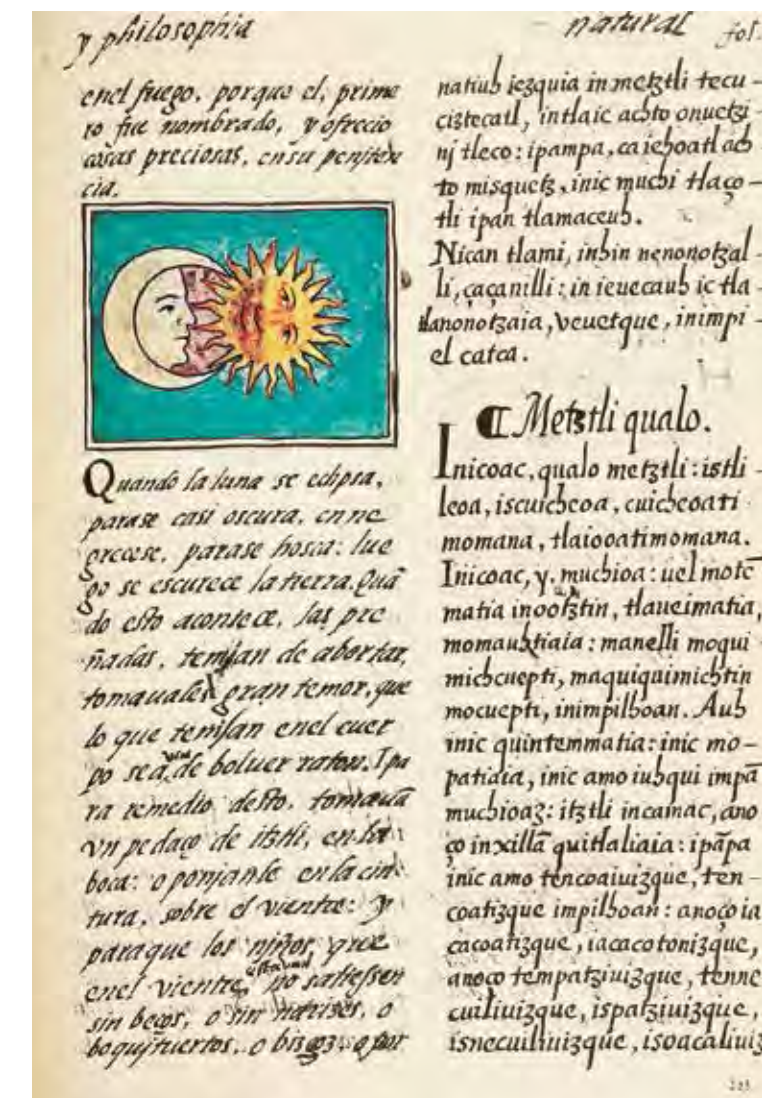 y philosophia
natural fol.
enel fuego, porque el, prime
ro fue nombrado, y ofrecio
cosas preciosas, ensu peniten
cia.
Quando la luna se eclipsa,
parase casi oscura, enne
grecese, parase hosca: lue
go se escurece la tierra. Quā
do esto acontece, las pre
ñadas, temjan de abortar,
tomauales gran temor, que
lo que tenjan enel cuer
po se auia de boluer raton. I pa
ra remedio desto, tomauā
vn pedaço de itztli, en la
boca: o ponjanle en la cin
tura, sobre el vientre: y
paraque los njños que
enel vientre estauan no saliessen
sin beços, o sin narizes, o
boquituertos, o bizcos, o por
natiuh iezquia in metztli tecu-
ciztecatl, intlaic achto onuetzi-
nj tleco: ipampa, ca iehoatl ach
to misquetz, inic muchi tlaço-
tli ipan tlamaceuh.
Nican tlami, inhin nenonotzal-
li, çaçanilli: in ieuecauh ic tla-
tlanonotzaia, veuetque, inimpi-
el catca.
¶ Metztli qualo.
Inicoac, qualo metztli: istli-
leoa, iscuicheoa, cuicheoati-
momana, tlaiooatimomana.
Inicoac, y. muchioa: uel motē
matia inootztin, tlaueimatia,
momauhtiaia: manelli moqui-
michcuepti, maquiquimichtin
mocuepti, inimpilhoan. Auh
inic quintemmatia: inic mo-
patiaia, inic amo iuhqui impā
muchioaz: itztli incamac, ano
ço inxillā quitlaliaia: ipāpa
inic amo tencoaiuizque, ten-
coatizque impilhoan: anoço ia
cacoatizque, iacacotonizque,
anoço tempatziuizque, tenne
cuiliuizque, ispatziuizque,
isnecuiliuizque, isoacaliuiz